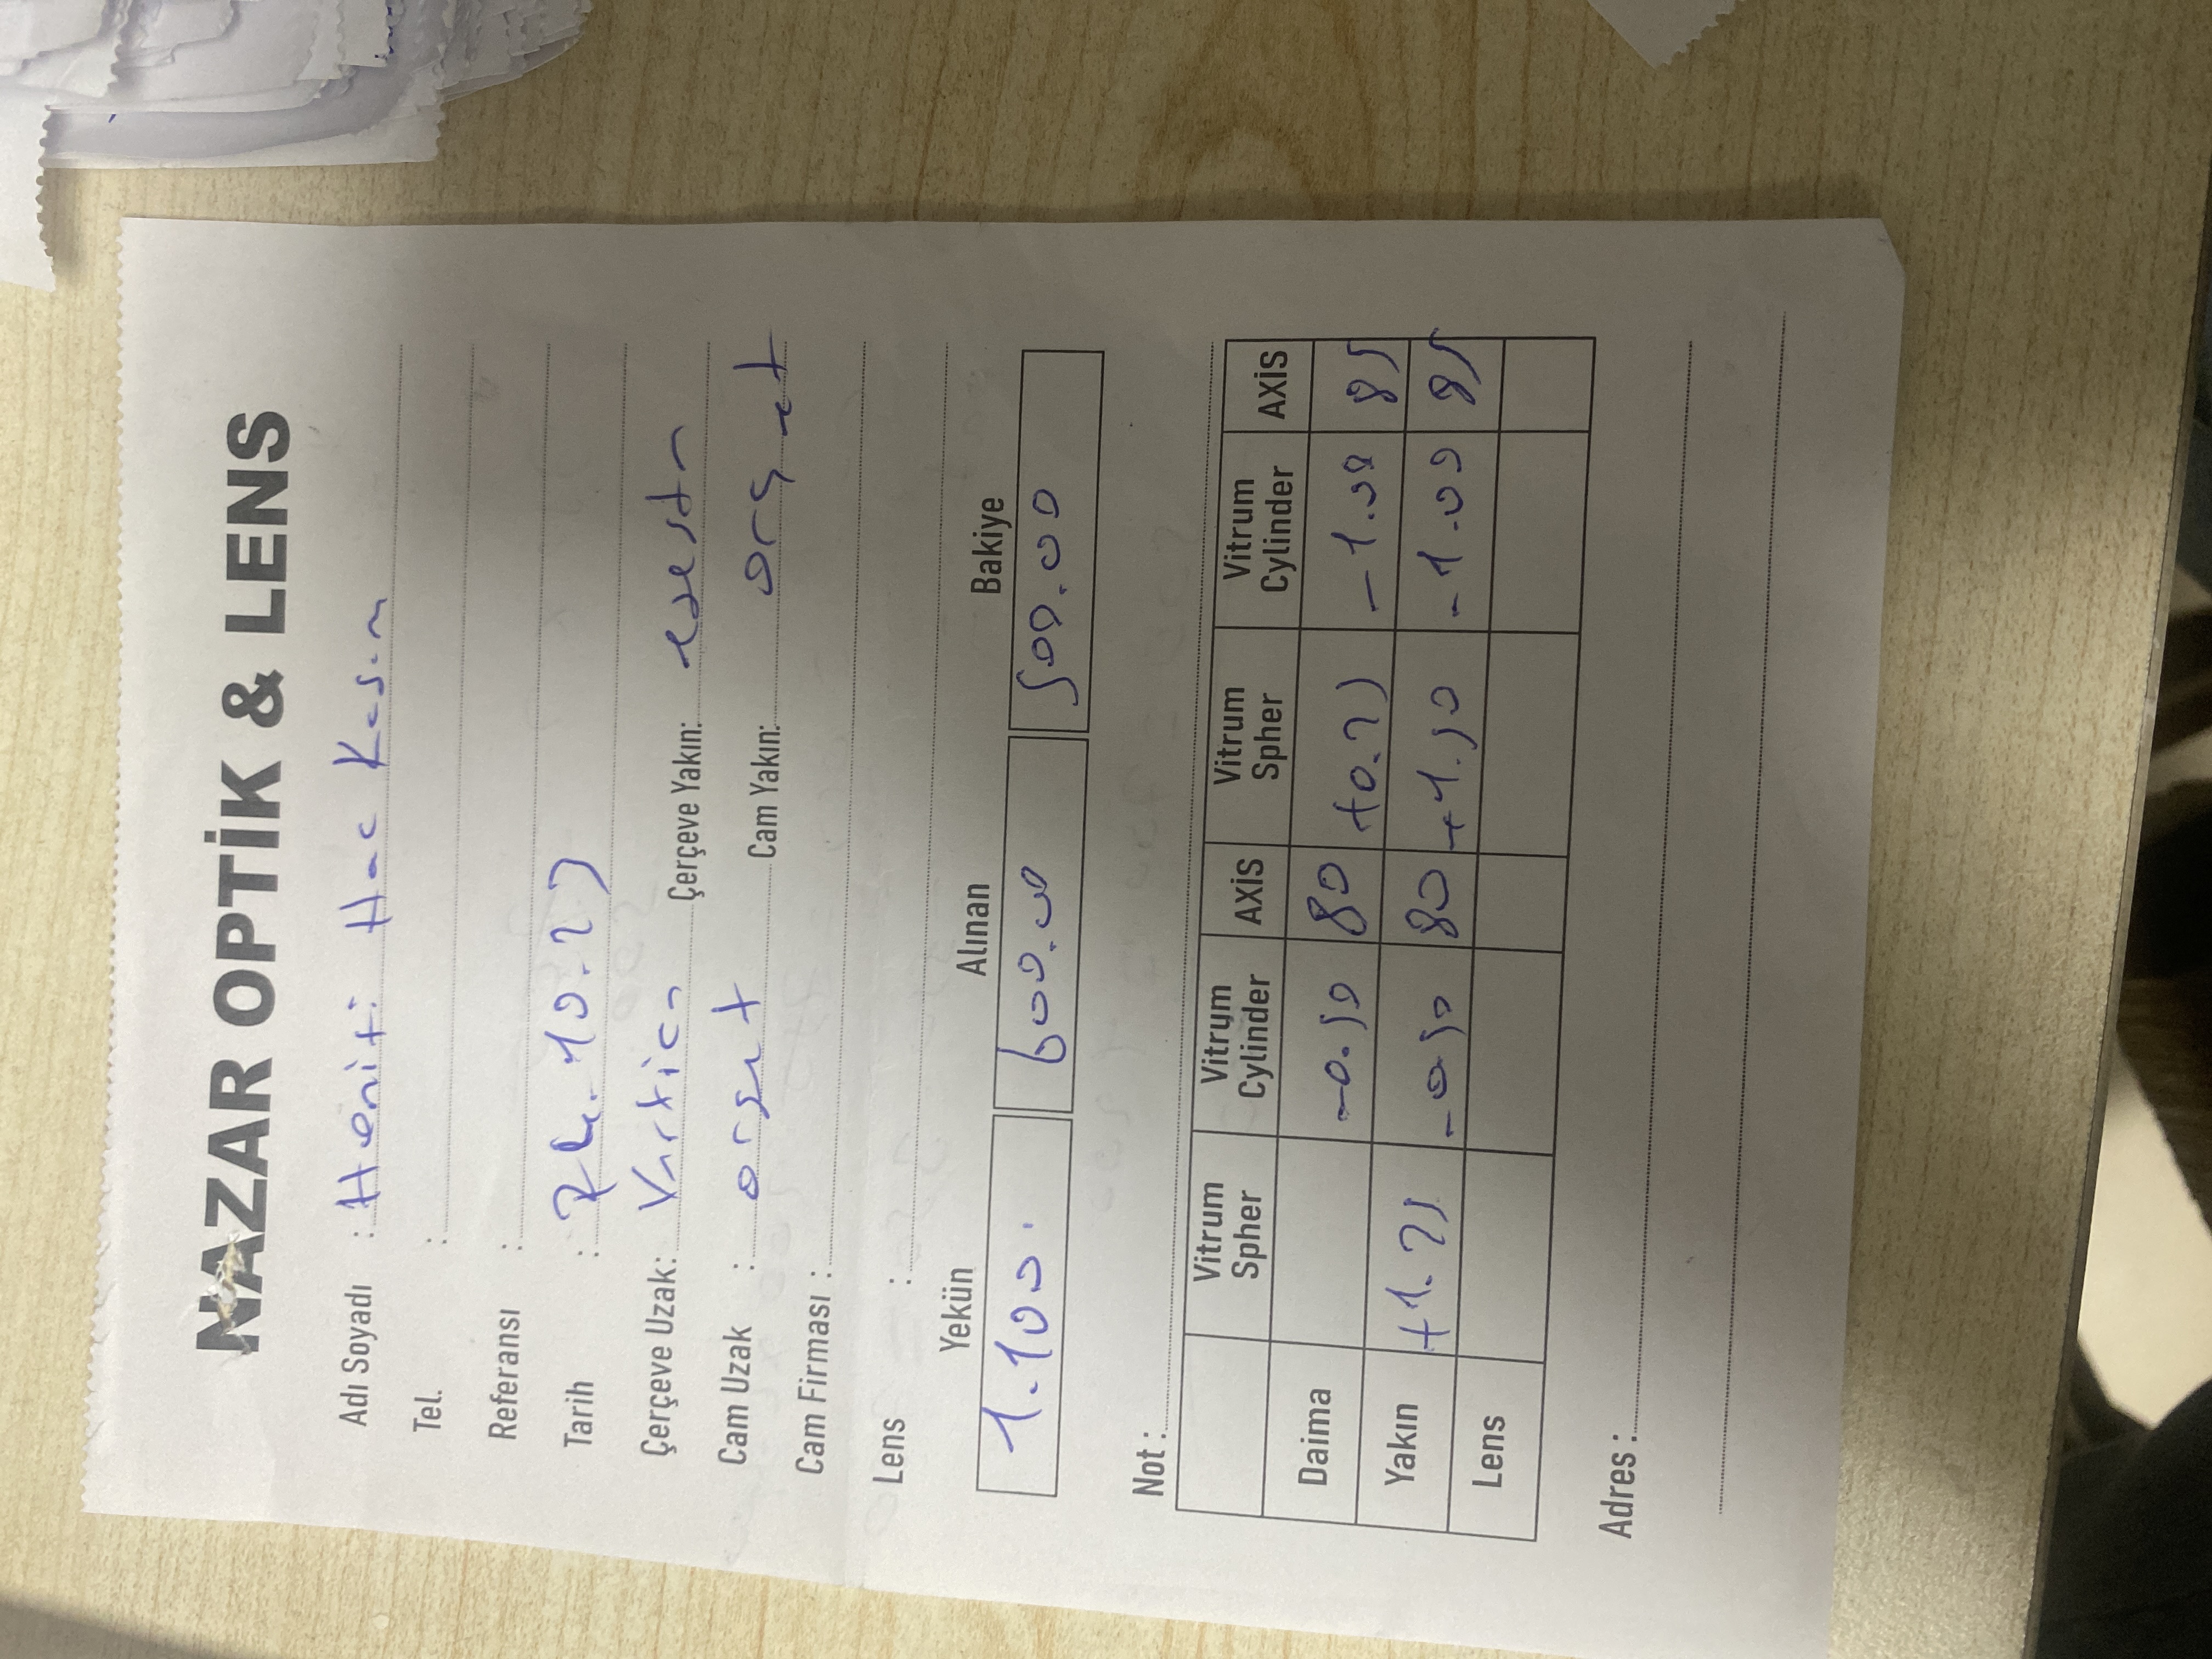 NAZAR OPTİK & LENS
Adı Soyadı : Hanifi Hac Kasım
Tel. :
Referansı :
Tarih : 24.10.23
Çerçeve Uzak: Çerçeve Yakın:
Cam Uzak : Cam Yakın:
Cam Firması :
Lens :
Yekün Alınan Bakiye
1.100. 600.00 500.00
Not :
Vitrum Spher Vitrum Cylinder AXİS Vitrum Spher Vitrum Cylinder AXİS
Daima -0.50 80 +0.25 -1.00 85
Yakın +1.25 -0.50 80 +1.50 -1.00 85
Lens
Adres :